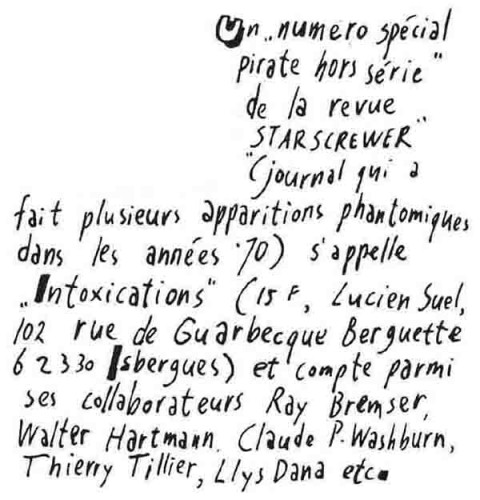 Un „numero spécial
pirate hors série"
de la revue
STARSCREWER"
"(journal qui a
fait plusieurs apparitions phantomiques
dans les années '70) s'appelle
„Intoxications" (15 F, Lucien Suel,
102 rue de Guarbecque Berguette
62330 Isbergues) et compte parmi
ses collaborateurs Ray Bremser,
Walter Hartmann, Claude P. Washburn,
Thierry Tillier, Llys Dana etc.